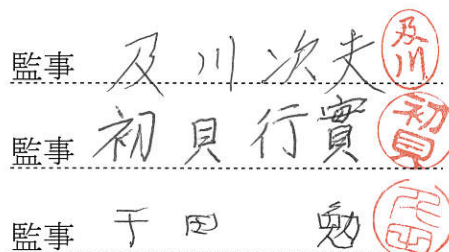 監事 及川次夫 及川
監事 初貝行實 初貝
監事 于田 勉